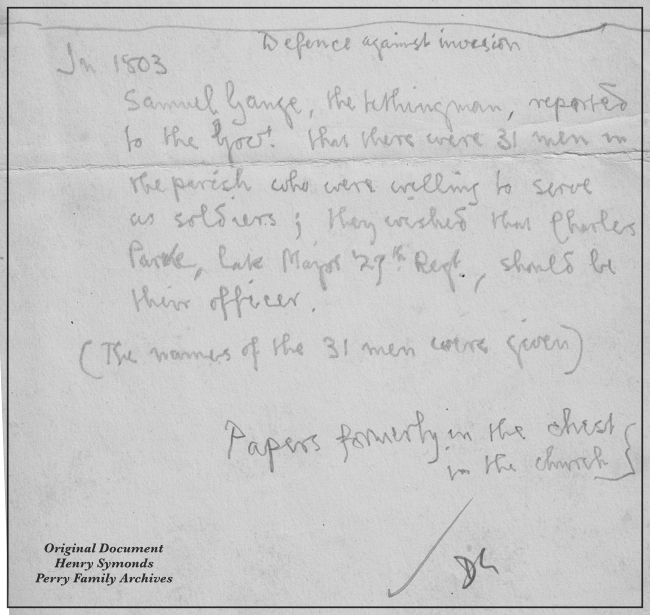 Defence against invasion
In 1803
Samuel Gange, the tethingman, reported
to the Govt. that there were 31 men in
the parish who were willing to serve
as soldiers; they wished that Charles
late Major 29th Regt, should be
their officer.
(The names of the 31 men were given)
Papers formerly in the chest
in the church }
Original Document
Henry Symonds
Perry Family Archives